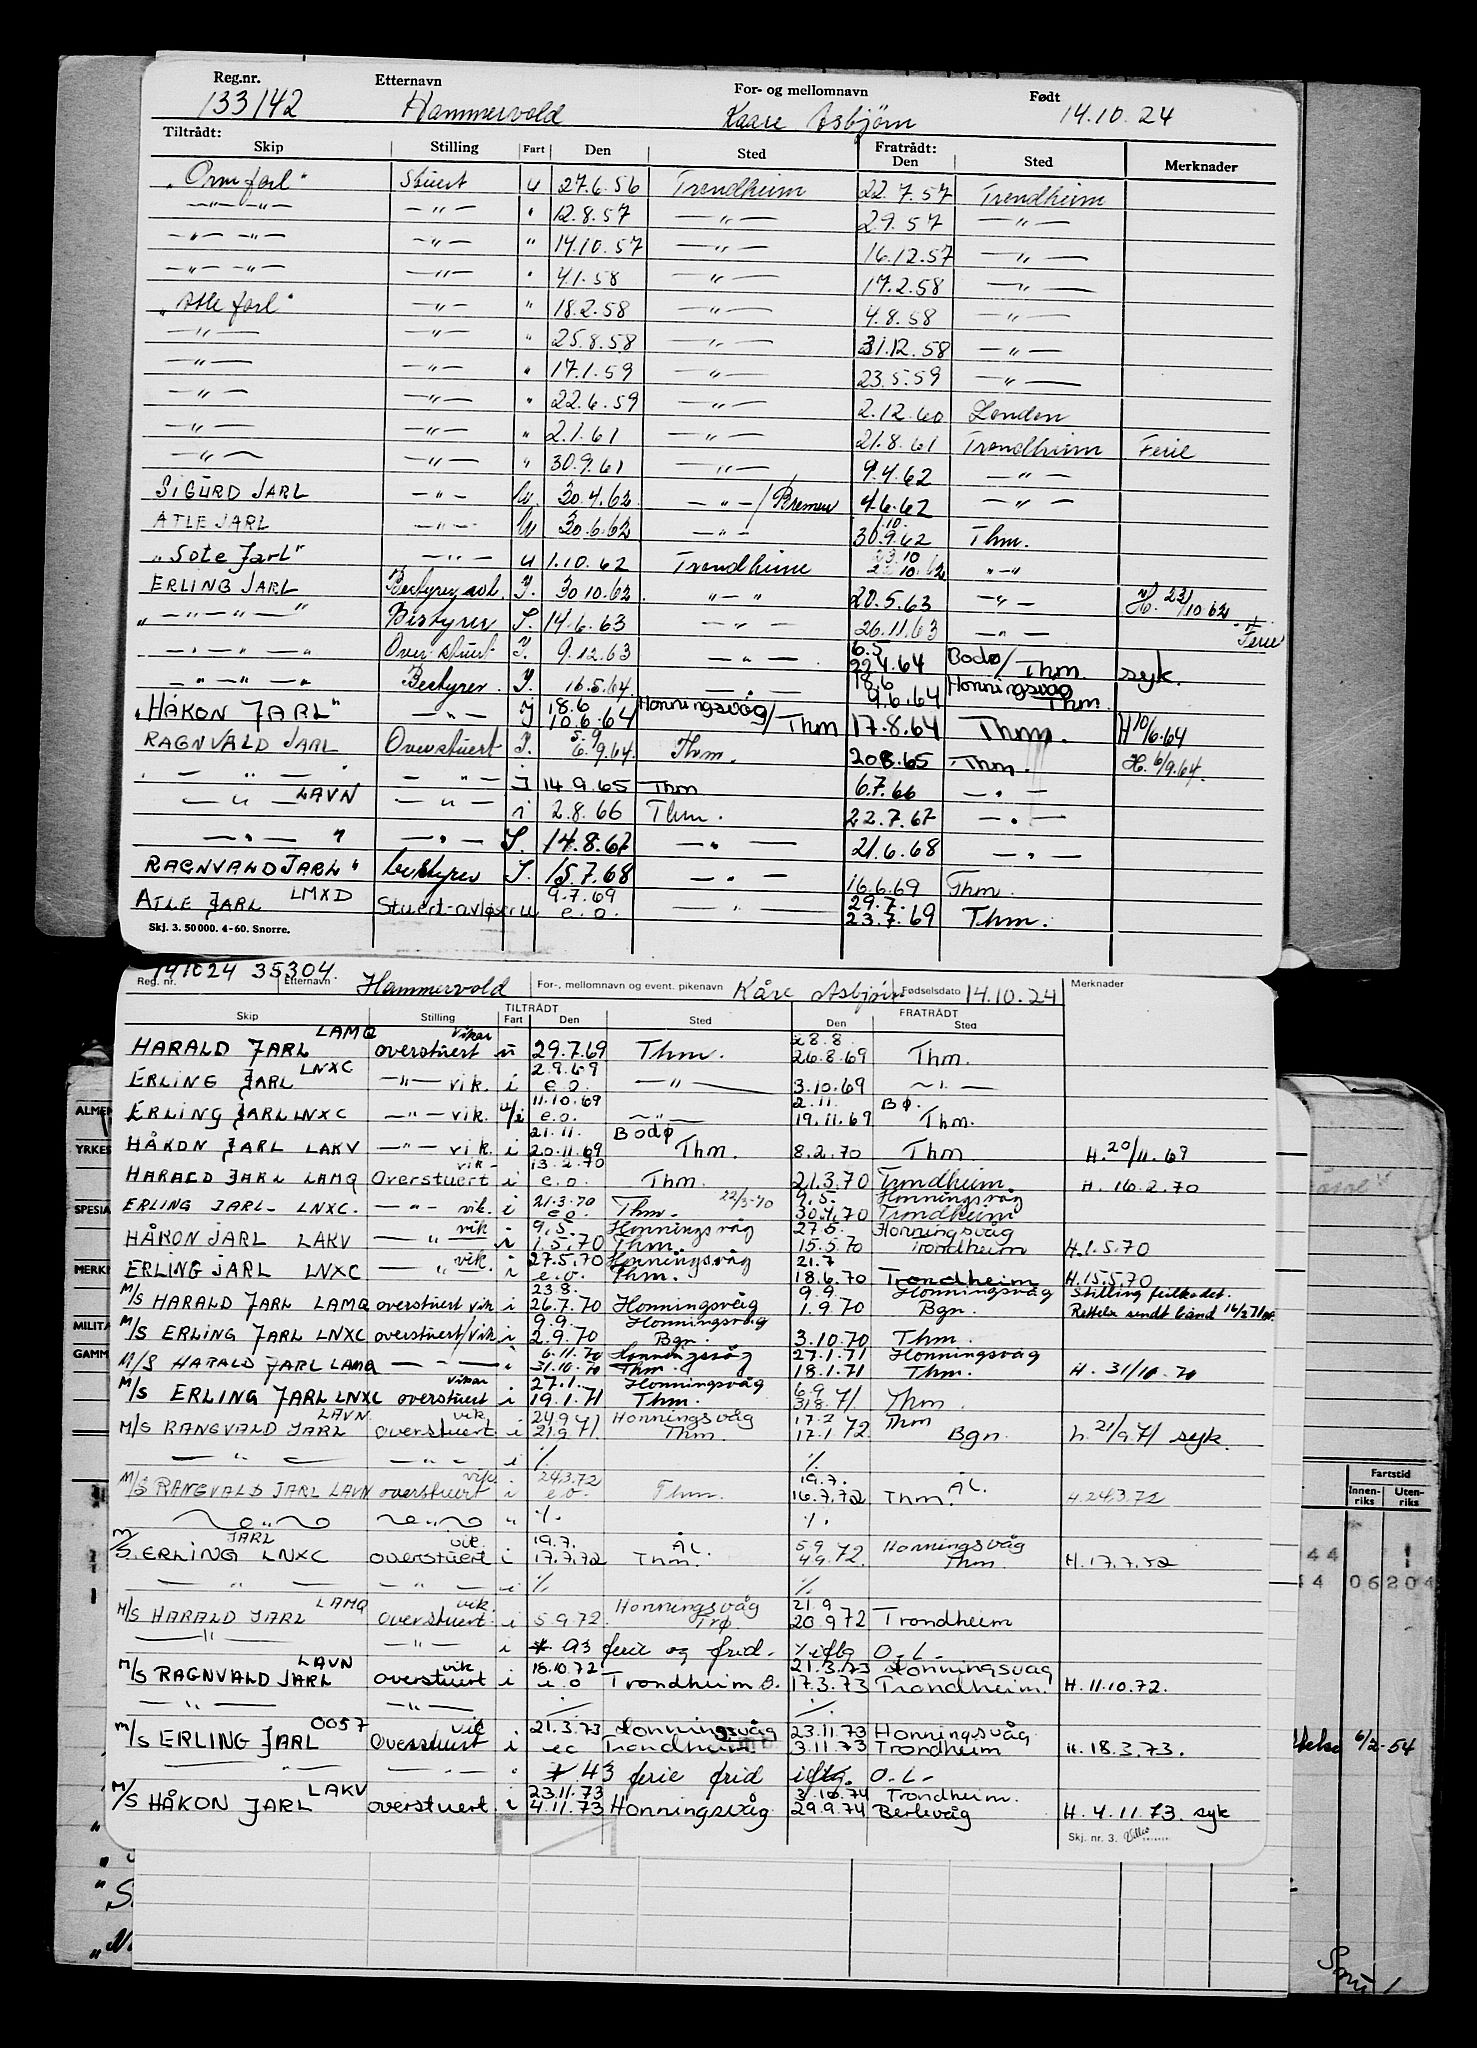 Reg.nr. Etternavn For- og mellomnavn Født
133142 Hammervold Kaare Asbjørn 14.10.24
Tiltrådt: Fratrådt:
Skip Stilling Fart Den Sted Den Sted Merknader
"Orm Jarl" Stuert u 27.6.56 Trondheim 22.7.57 Trondheim
—"— —"— —"— " 12.8.57 —"— 2.9.57 —"—
—"— —"— —"— " 14.10.57 —"— 16.12.57 —"—
—"— —"— —"— " 4.1.58 —"— 17.2.58 —"—
"Atle Jarl" —"— " 18.2.58 —"— 4.8.58 —"—
—"— —"— " 25.8.58 —"— 31.12.58 —"—
—"— —"— " 17.1.59 —"— 23.5.59 —"—
—"— —"— " 22.6.59 —"— 2.12.60 London
—"— —"— " 2.1.61 —"— 21.8.61 Trondheim Ferie
—"— —"— " 30.9.61 —"— 9.4.62 —"—
SIGURD JARL —"— 30.4.62 —"—/Bremen 4.6.62 —"—
ATLE JARL —"— 30.6.62 —"— 1.10. 30.9.62 Thm.
"Sote Jarl" —"— u 1.10.62 Trondheim 23.10 10.62 "—"
ERLING JARL Bestyrer avl. I. 30.10.62 —"— 20.5.63 —"— H. 22/10.62
" — " — " — " Bestyrer I. 14.6.63 —"— 26.11.63 —"— Ferie
— " — " — " Over stuert I. 9.12.63 —"— 6.5 22.4.64 Bodø/Thm syk.
— " — " — " Bestyrer I. 16.5.64 —"— 18.6 9.6.64 Honningsvåg Thm.
"HÅKON JARL" —"— I 18.6 10.6.64 Honningsvåg/Thm 17.8.64 Thm. H 10/6.64
RAGNVALD JARL Overstuert I. 5.9 6.9.64 Thm. 20.8.65 Thm. H. 6/9.64.
— " — " —"— I 14.9.65 Thm 6.7.66 —"—
—"— LAVN —"— i 2.8.66 Thm. 22.7.67 —"—
—"— " —"— I. 14.8.67 —"— 21.6.68 —"—
RAGNVALD JARL" bestyrer I. 15.7.68 —"— 16.6.69 Thm.
ATLE JARL LMXD Stuert-avløser u 9.7.69 e.o. —"— 29.7. 23.7.69 Thm.
Skj. 3. 50 000. 4-60. Snorre.
141024 35304.
Reg. nr. Etternavn Hammervold For-, mellomnavn og event. pikenavn Kåre Asbjørn Fødselsdato 14.10.24 Merknader
TILTRÅDT FRATRÅDT
Skip Stilling Fart Den Sted Den Sted
HARALD JARL LAMQ overstuert vikar u 29.7.69 Thm. 28.8. 26.8.69 Thm.
ERLING JARL LNXC —"— vik. i 2.9.69 e.o. —"— 3.10.69 —"—
ERLING JARL LNXC —"— vik. u/i 11.10.69 e.o. —"— 2.11. 19.11.69 BØ. Thm.
HÅKON JARL LAKV —"— vik. i 21.11. 20.11.69 Bodø Thm. 8.2.70 Thm H. 20/11.69
HARALD JARL LAMQ Overstuert vik- i 13.2.70 e.o. Thm. 21.3.70 Trondheim. H. 16.2.70
ERLING JARL- LNXC. —"— vik. i 21.3.70 e.o. Thm. 22/3-70 9.5. 30.4.70 Honningsvåg Trondheim
HÅKON JARL LAKV —"— vik i 9.5. 1.5.70 Honningsvåg Thm. 27.5. 15.5.70 Honningsvåg Trondheim H.1.5.70
ERLING JARL LNXC —"— vik. i 27.5.70 e.o. Honningsvåg Thm. 21.7 18.6.70 Trondheim H.15.5.70
M/S HARALD JARL LAMQ overstuert vik i 23.8. 26.7.70 Honningsvåg 9.9. 1.9.70 Honningsvåg Bgn. Stilling feilkodet. Rettelse sendt bånd 16/2 71
M/S ERLING JARL LNXC overstuert/vik i 9.9. 2.9.70 Honningsvåg Bgn. 3.10.70 Thm.
M/S HARALD JARL LAMQ — " — i 6.11.70 31.10.70 Honningsvåg Thm. 27.1.71 18.1.71 Honningsvåg Thm. H. 31/10.70
M/S ERLING JARL LNXC overstuert vikar i 27.1. 19.1.71 Honningsvåg Thm. 6.9 31.8.71. Thm.
M/S RANGVALD JARL LAVN overstuert vik. i 24.9 21.9.71 Honningsvåg Thm. 17.2 17.1.72 Thm Bgn. h. 21/9.71 syk.
— " — — " — i ·/. ·/.
M/S RANGVALD JARL LAVN overstuert vik. i 24.3.72 e.o. Thm. 19.7. 16.7.72 ÅL. Thm. H.24.3.72
" " " ·/. ·/.
M/S. ERLING JARL LNXC overstuert vik. i 19.7. 17.7.72 ÅL. Thm. 5.9 4.9.72 Honningsvåg Thm H.17.7.72
— " — — " — i ·/. ·/.
M/S HARALD JARL LAMQ overstuert vik. i 5.9.72 Honningsvåg Trø. 21.9 20.9.72 Trondheim
—"— —"— i 93 ferie og frid. iflg O.L.
M/S RAGNVALD JARL LAVN overstuert vik i 18.10.72 e.o Trondheim B. 21.3.73 17.3.73 Honningsvåg Trondheim. H.11.10.72.
— " — —"— ·/. ·/.
M/S ERLING JARL 0057 Overstuert vik i 21.3.73 eo Honningsvåg Trondheim 23.11.73 3.11.73 Honningsvåg Trondheim H.18.3.73.
— " — — " — 43 ferie frid iflg. O.L.
M/S HÅKON JARL LAKV overstuert. i 23.11.73 4.11.73 Honningsvåg 3.10.74 29.9.74 Trondheim. Berlevåg H.4.11.73. syk
Skj. nr. 3.
ALMEN
YRKES
SPESIA
MERKN
MILITÆ
GAMM
Fartstid
Innen-riks Uten-riks
44
44 06204
6/2-54